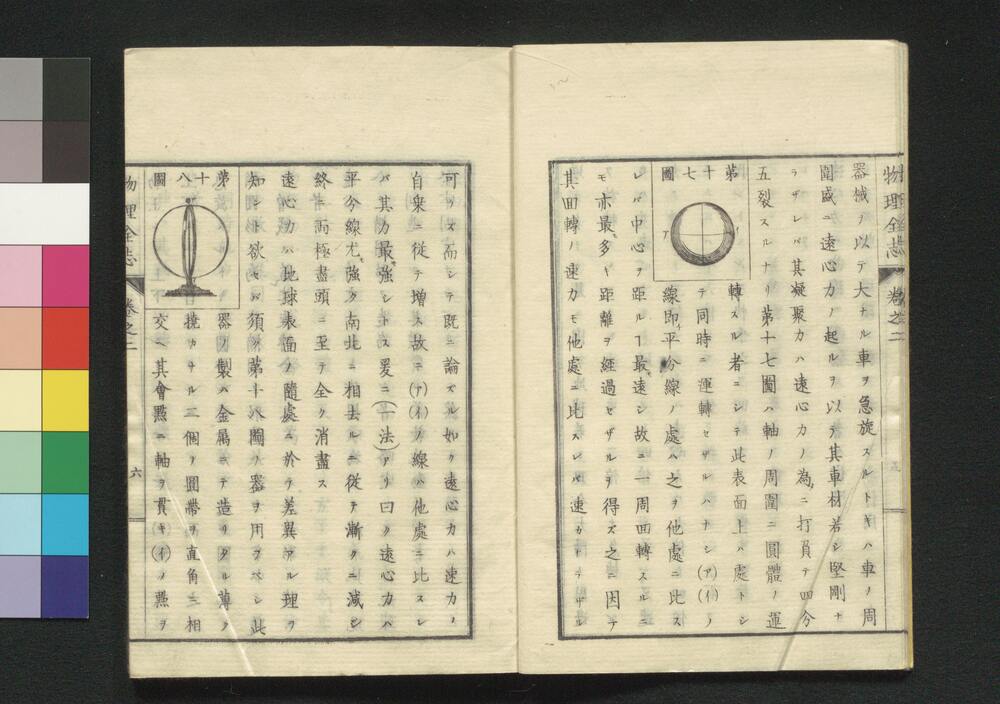 物理全志 卷之二
器械ヲ以テ大ナル車ヲ急旋スルトキハ車ノ周
圍盛ニ遠心力ノ起ルヲ以テ其車材若シ堅剛ナ
ラザレバ其凝聚力ハ遠心力ノ為ニ打負テ四分
五裂スルナリ第十七圖ハ軸ノ周圍ニ圓體ノ運
第十七圖
轉スル者ニシテ此表面上ハ處トシ
テ同時ニ運轉セザルハナシ(ア)(イ)ノ
線即平分線ノ處ハ之ヲ他處ニ比ス
レバ中心ヲ距ルヿ最遠シ故ニ一周回轉スルニ
モ亦最多キ距離ヲ經過セザルヲ得ズ之ニ因テ
其回轉ノ速力モ他處ニ比スレバ速カトラザル
可ラズ而シテ既ニ論ズル如ク遠心力ハ速力ノ
自乗ニ從テ増ス故ニ(ア)(イ)ノ線ハ他處ニ比スレ
バ其力最強シトス爰ニ(一法)アリ曰ク遠心力ハ
平分線尤強ク南北ニ相去ルニ從テ漸クニ減シ
終ニ両極盡頭ニ至テ全ク消盡ス
遠心力ハ地球表面ノ隨處ニ於テ差異アル理ヲ
知ント欲セバ須ク第十八圖ノ器ヲ用フベシ此
第十八圖
器ノ製ハ金属ニテ造リタル薄ク
撓カナル二個ノ圓帶ヲ直角ニ相
交ヘ其會㸃ニ軸ヲ貫キ(イ)ノ㸃ヲ
物理全志 卷之二 六